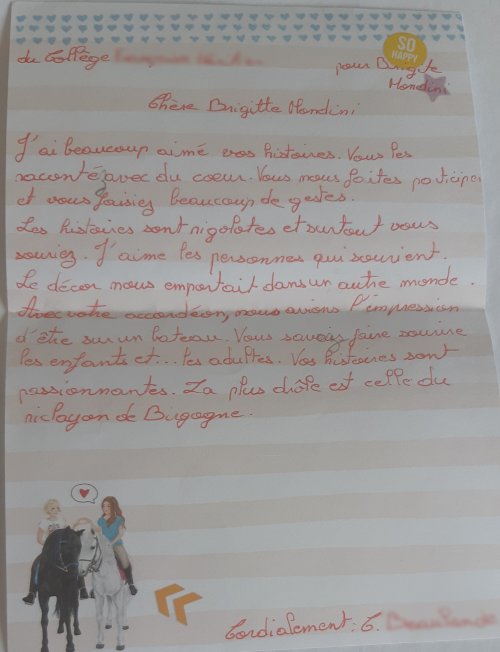 du Collège
SO
HAPPY
pour Brigitte
Mondini
Chère Brigitte Mondini
J'ai beaucoup aimé vos histoires. Vous les
raconté avec du coeur. Vous nous faites participer
et vous faisiez beaucoup de gestes.
Les histoires sont rigolotes et surtout vous
souriez. J'aime les personnes qui sourient.
Le décor nous emportait dans un autre monde.
Avec votre accordéon, nous avions l'impression
d'être sur un bateau. Vous savais faire sourire
les enfants et... les adultes. Vos histoires sont
passionnantes. La plus drôle est celle du
de Bigogne.
Cordialement: C.